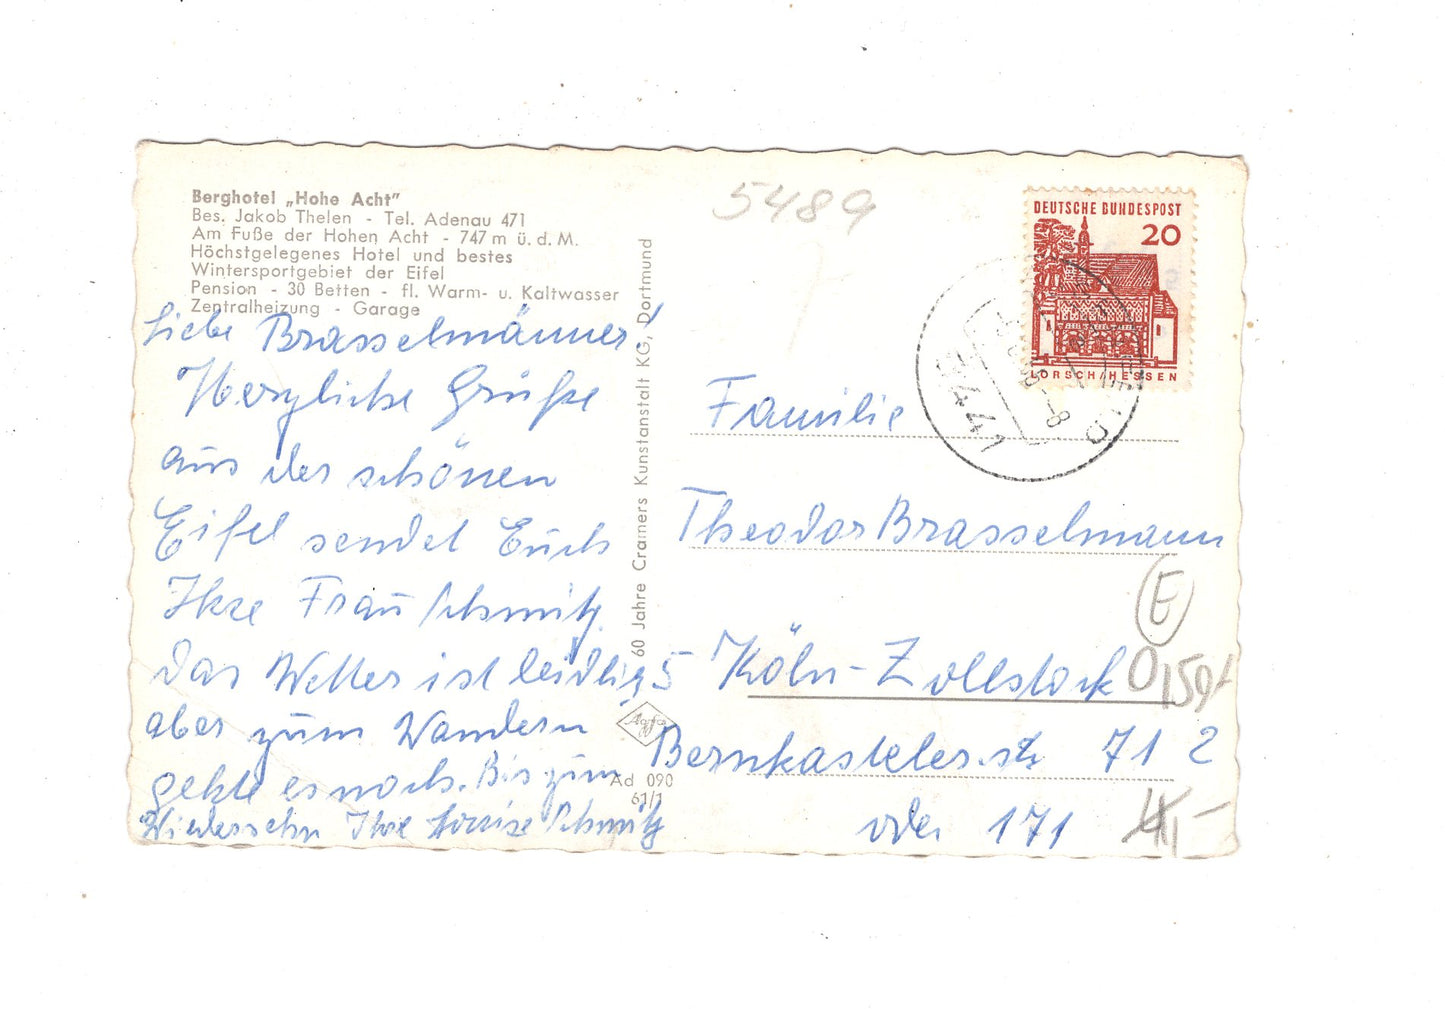 Berghotel „Hohe Acht"
Bes. Jakob Thelen - Tel. Adenau 471
Am Fuße der Hohen Acht - 747 m ü. d. M.
Höchstgelegenes Hotel und bestes
Wintersportgebiet der Eifel
Pension - 30 Betten - fl. Warm- u. Kaltwasser
Zentralheizung - Garage
Liebe Brasselmänner!
Herzliche Grüße
aus der schönen
Eifel sendet Euch
Ihre Frau Schmitz.
Das Wetter ist leidlig,
aber zum Wandern
gehte es noch. Bis zum
Wiedersehn Ihre Louise Schmitz
60 Jahre Cramers Kunstanstalt KG, Dortmund
Agfa
Ad 090
61/1
5489
DEUTSCHE BUNDESPOST
20
LORSCH/HESSEN
5441
Familie
Theodor Brasselmann
5 Köln-Zollstock
Bernkastelerstr 71 2
oder 171
E